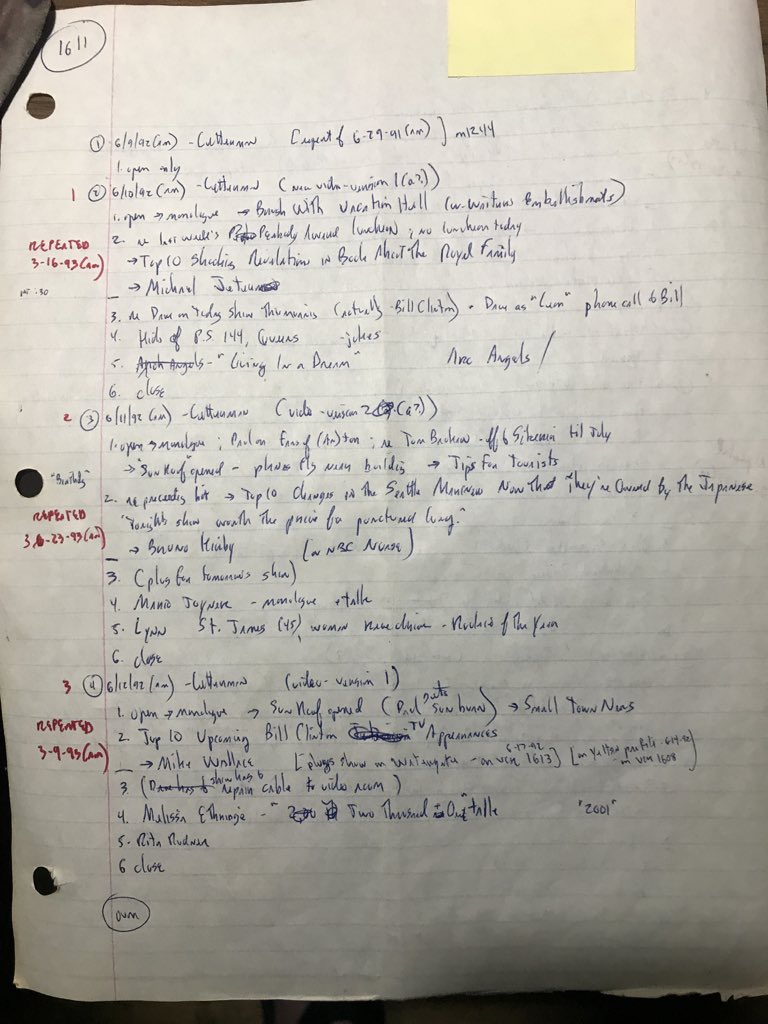 1611
① 6/9/92 (AM) - Letterman [repeat of 6-29-91 (AM)] m1244
1. open only
1 ② 6/10/92 (AM) - Letterman (new video - version 1 (a?))
1. open → monologue → Brush With Vacation Hell (w. Writers Embellishments)
2. re last week's Peabody Award luncheon ; no luncheon today
REPEATED
3-16-93 (AM)
→ Top 10 Shocking Revelation in Book About The Royal Family
→ Michael Jeter
3. re Dave on Today Show Thursday (actually Bill Clinton) • Dave as "Leon" phone call to Bill
4. Kids of P.S. 144, Queens - jokes
5. - "Living In a Dream" Arc Angels /
6. close
2 ③ 6/11/92 (AM) - Letterman (video - version 2 (a?))
1. open → monologue ; Paul on ; re Tom Brokaw - off to til July
→ "Sun Roof" opened - planes fly near building → Tips For Tourists
"Birthday"
2. re preceding bit → Top 10 Changes in the Seattle Mariners Now That They're Owned By The Japanese
REPEATED
3-23-93 (AM)
"Tonight's show worth the price of a punctured lung."
→ Bruno Kirby [on NBC Nurse]
3. (plug for tomorrow's show)
4. Mario Joyner - monologue + talk
5. Lynn St. James (45), woman race driver - Rookie of the Year
6. close
3 ④ 6/12/92 (AM) - Letterman (video - version 1)
1. open → monologue → Sun Roof opened (Paul gets sun burn) → Small Town News
2. Top 10 Upcoming Bill Clinton TV Appearances
REPEATED
3-9-93 (AM)
→ Mike Wallace [plugs show on Watergate - on VCR 1613] 6-17-92 [on 6-14-92 on VCR 1608]
3. (show has to repair cable to video room)
4. Melissa Etheridge - "Two Thousand + One" talk "2001"
5. Rita Rudner
6 close
over